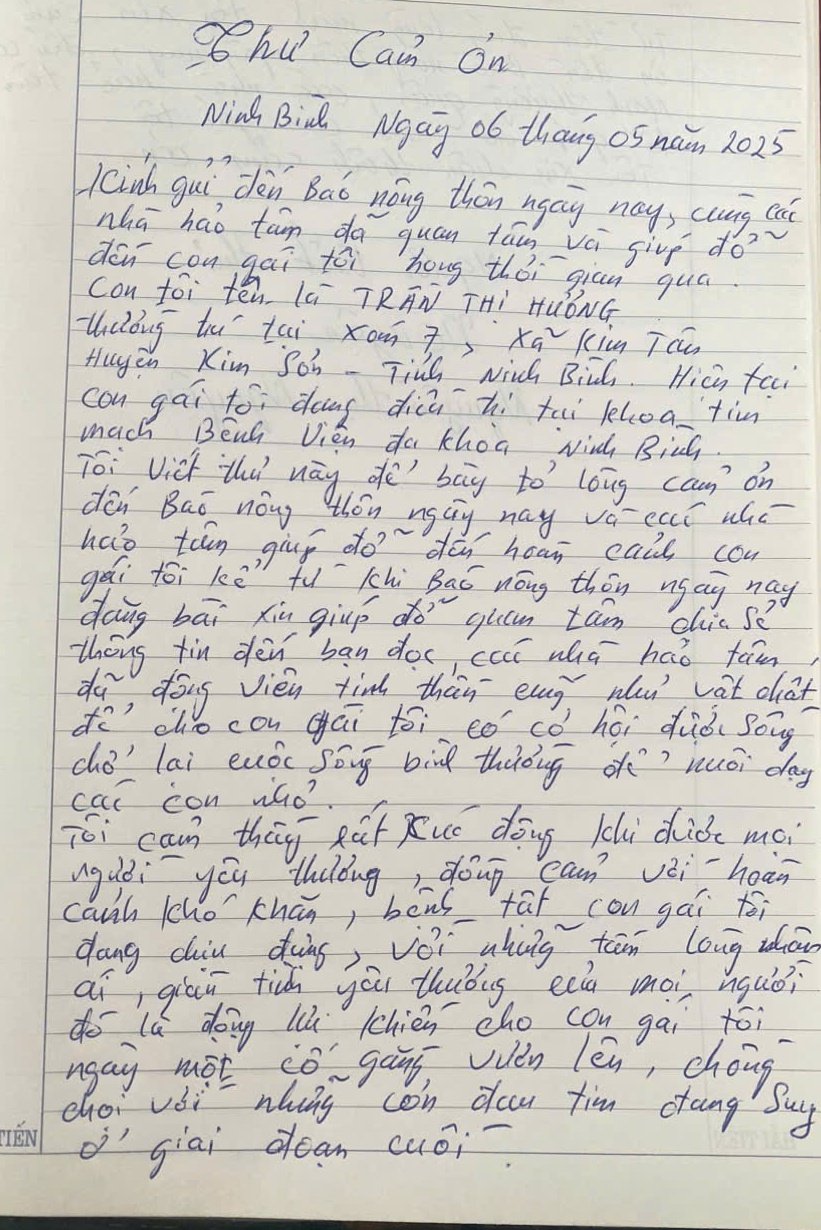 Thư Cảm Ơn
Ninh Bình Ngày 06 tháng 05 năm 2025
Kính gửi đến Báo nông thôn ngày nay, cùng các
nhà hảo tâm đã quan tâm và giúp đỡ
đến con gái tôi trong thời gian qua.
Con tôi tên là TRẦN THỊ HƯỜNG
thường trú tại xóm 7, xã Kim Tân
Huyện Kim Sơn - Tỉnh Ninh Bình. Hiện tại
con gái tôi đang điều trị tại khoa tim
mạch Bệnh Viện đa khoa Ninh Bình.
Tôi viết thư này để bày tỏ lòng cảm ơn
đến Báo nông thôn ngày nay và các nhà
hảo tâm giúp đỡ đến hoàn cảnh con
gái tôi kể từ khi Báo nông thôn ngày nay
đăng bài xin giúp đỡ quan tâm chia sẻ
thông tin đến bạn đọc, các nhà hảo tâm,
đã động viên tinh thần cũng như vật chất
để cho con gái tôi có cơ hội được sống
chở lại cuộc sống bình thường để nuôi dạy
các con nhỏ.
Tôi cảm thấy rất xúc động khi được mọi
người yêu thương, đồng cảm với hoàn
cảnh khó khăn, bệnh tật con gái tôi
đang chịu đựng, với những tấm lòng nhân
ái, giàu tình yêu thương của mọi người
đó là động lực khiến cho con gái tôi
ngày một cố gắng vươn lên, chống
chọi với những cơn đau tim đang suy
ở giai đoạn cuối.
TIẾN